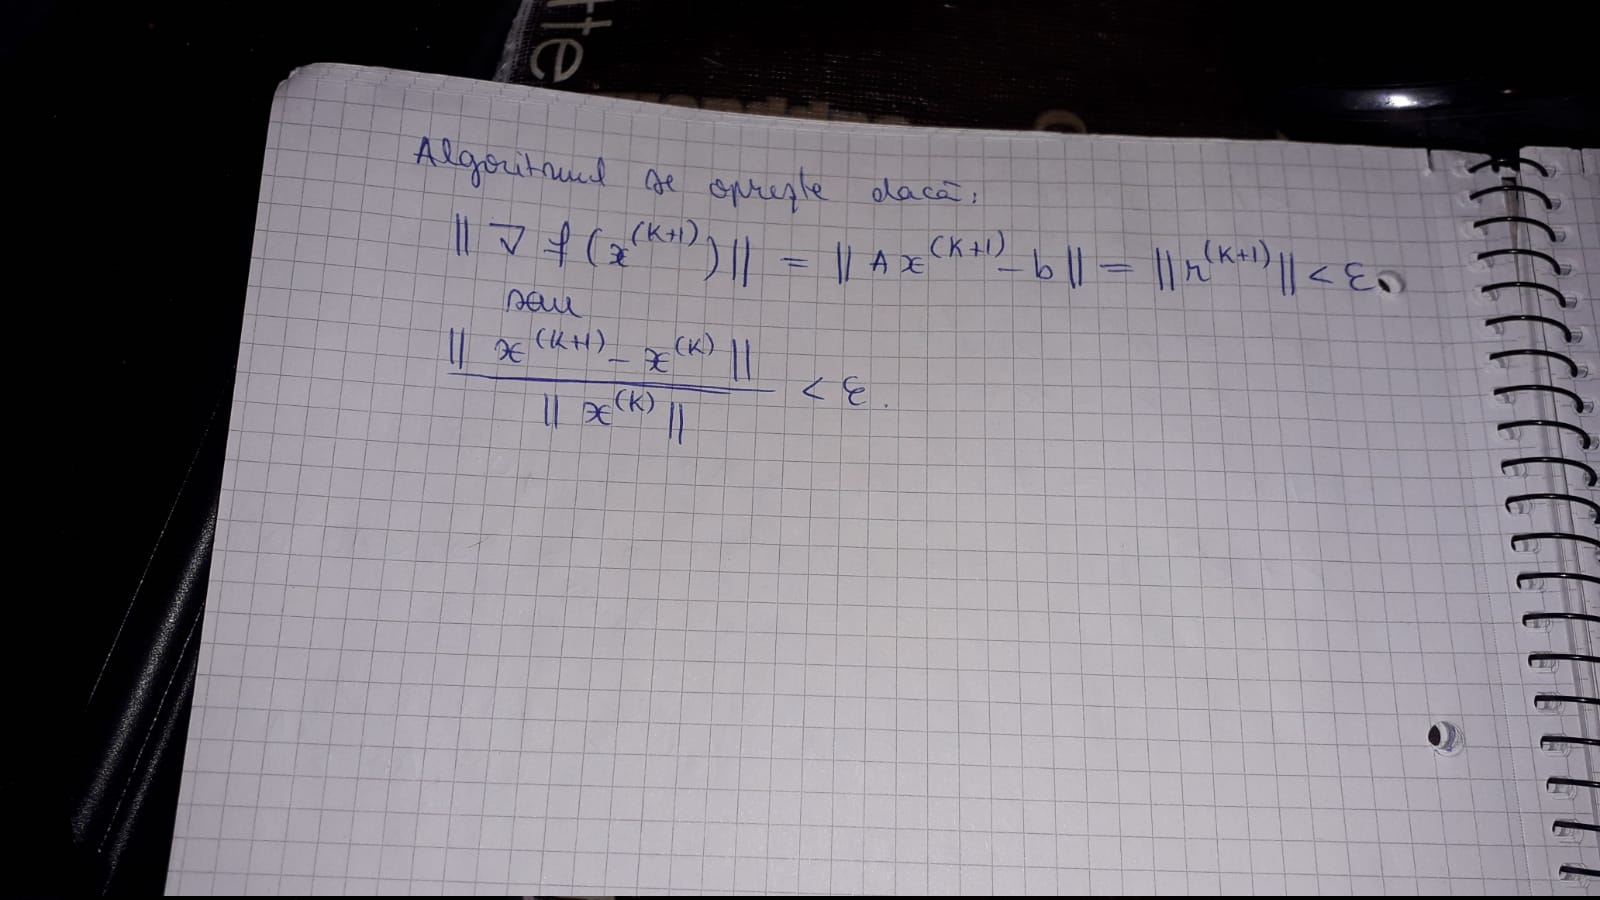 tte
Algoritmul se oprește dacă:
|| ∇ f (x^(k+1)) || = || A x^(k+1) - b || = || r^(k+1) || < ε.
sau
|| x^(k+1) - x^(k) ||
|| x^(k) ||
< ε.